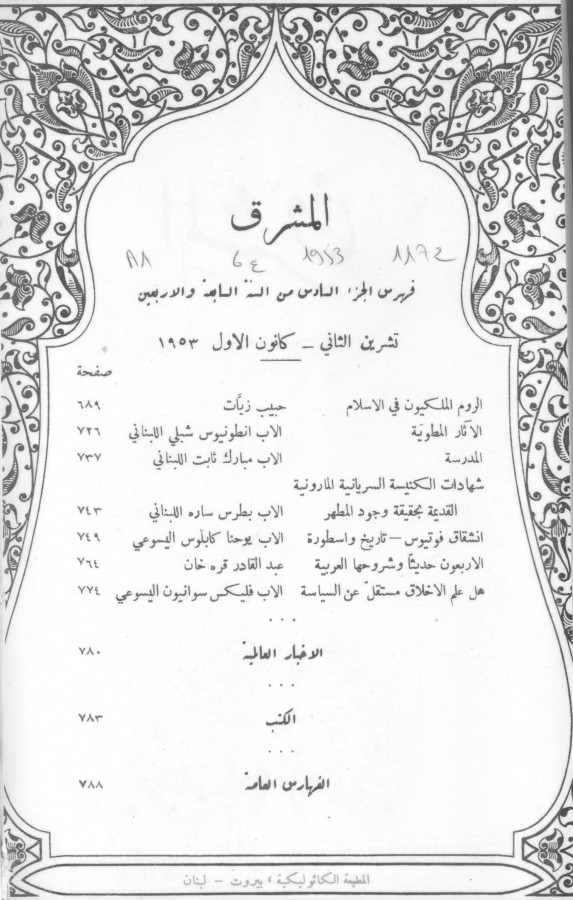 المشرق
A1 6 ع 1953 1172
فهرس الجزء السادس من السنة السابعة والاربعين
تشرين الثاني – كانون الاول ١٩٥٣
صفحة
الروم الملكيون في الاسلام حبيب زيَّات ٦٨٩
الآثار المطويّة الاب انطونيوس شبلي اللبناني ٧٢٦
المدرسة الاب مبارك ثابت اللبناني ٧٣٧
شهادات الكنيسة السريانية المارونية
القديمة بحقيقة وجود المطهر الاب بطرس ساره اللبناني ٧٤٣
انشقاق فوتيوس – تاريخ واسطورة الاب يوحنا كابلوس اليسوعي ٧٤٩
الاربعون حديثاً وشروحها العربية عبد القادر قره خان ٧٦٤
هل علم الاخلاق مستقلّ عن السياسة الاب فليكس سوانيون اليسوعي ٧٧٤
...
الاخبار العالمية ٧٨٠
...
الكتب ٧٨٣
...
الفهارس العامة ٧٨٨
المطبعة الكاثوليكية، بيروت – لبنان